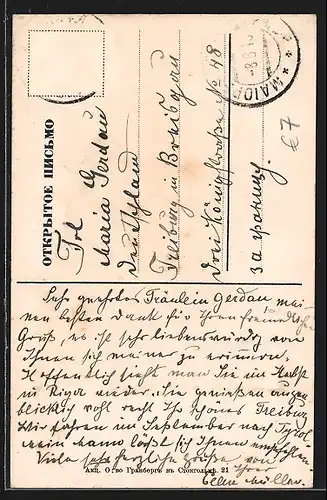 ОТКРЫТОЕ ПИСЬМО
MAIOR
Frl
Maria Gerdau
Deutschland
Freiburg in Breisgau
Drei Königstrasse No 48
заграницу.
€7
Sehr geehrtes Fräulein Gerdau mei-
nen besten Dank für Ihren freundlichen
Gruß, es ist sehr liebenswürdig von
Ihnen sich meiner zu erinnern.
Hoffentlich sieht man Sie im Herbst
in Riga wieder. Sie genießen augen
blicklich wohl recht Ihr schönes Freiburg
Wir fahren im September nach Tyrol
Meine Mama läßt sich Ihnen empfehlen.
Viele sehr herzliche Grüße von
Ihrer
Ellen Müller.
Акц. О-во Гранбергъ въ Стокгольмѣ. 21